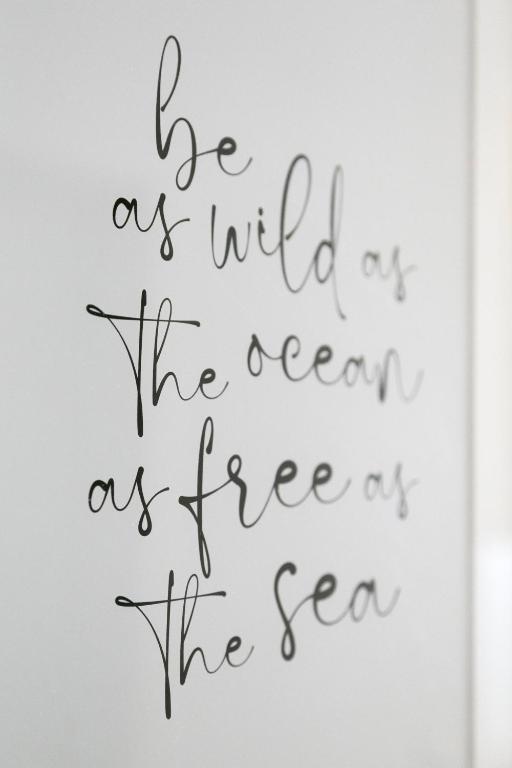 be
as wild as
The ocean
as free as
The sea